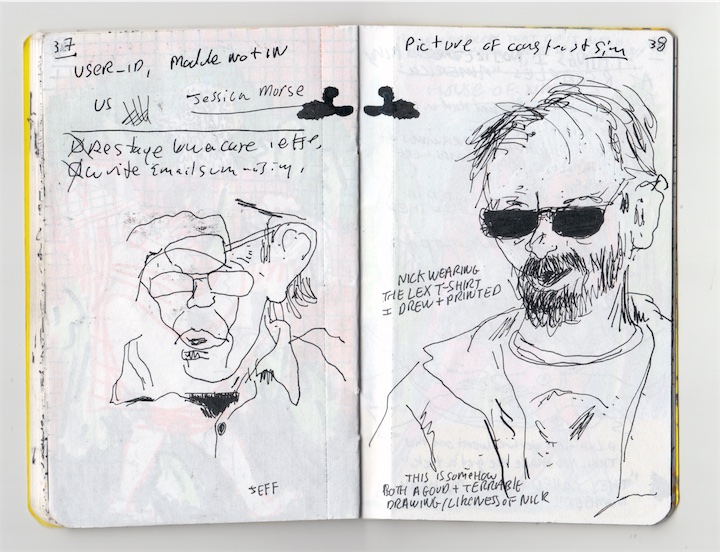 37
USER_ID, Mobile not in
US Jessica Morse
write Email
JEFF
Picture of construct Sim 38
NICK WEARING
THE LEX T-SHIRT
I DREW + PRINTED
THIS IS SOMEHOW
BOTH A GOUD + TERRABLE
DRAWING/LIKENESS OF NICK